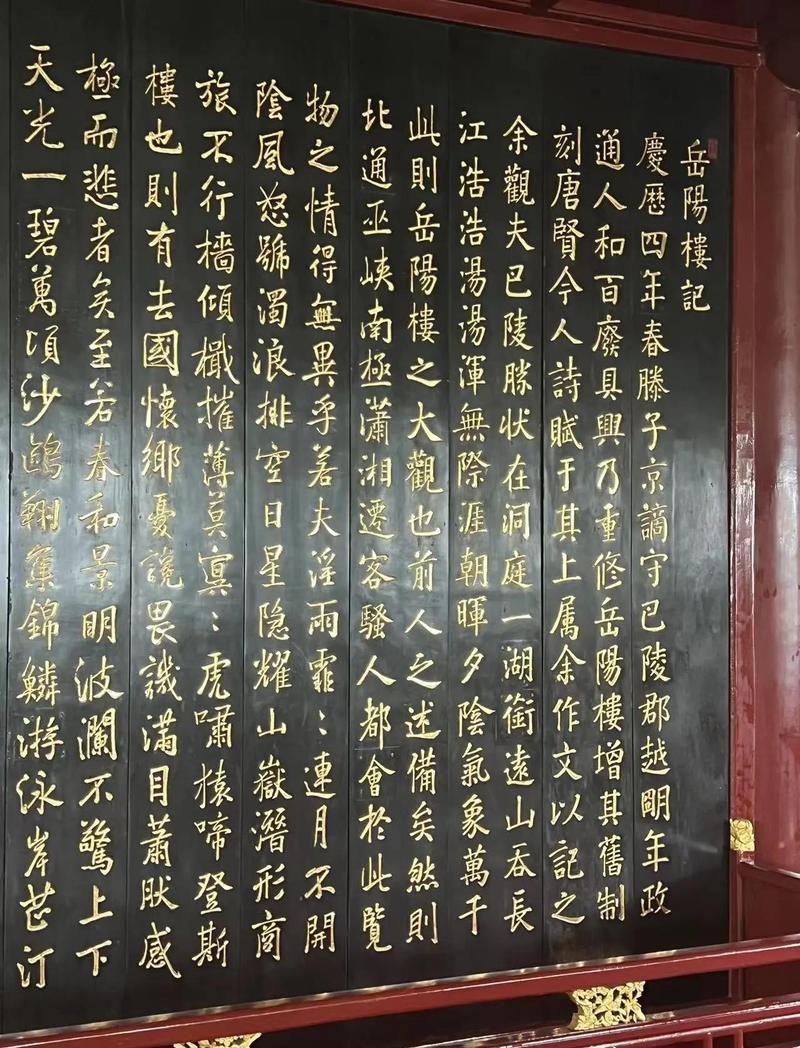 岳陽樓記
慶歷四年春滕子京謫守巴陵郡越明年政
通人和百廢具興乃重修岳陽樓增其舊制
刻唐賢今人詩賦于其上属余作文以記之
余觀夫巴陵勝状在洞庭一湖銜遠山吞長
江浩浩湯湯渾無際涯朝暉夕陰氣象萬千
此則岳陽樓之大觀也前人之述備矣然則
北通巫峽南極瀟湘遷客騷人都會於此覽
物之情得無異乎若夫淫雨霏〻連月不開
陰風怒號濁浪排空日星隐耀山嶽潛形商
旅不行檣傾檝摧薄莫冥〻虎嘯猿啼登斯
樓也則有去國懷鄉憂讒畏譏滿目蕭肰感
極而悲者矣至若春和景明波瀾不驚上下
天光一碧萬頃沙鷗翔集錦鱗游泳岸芷汀